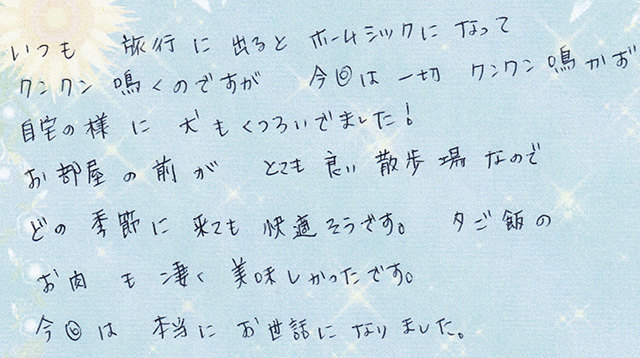 いつも 旅行に出るとホームシックになって
クンクン鳴くのですが 今回は一切 クンクン鳴かず
自宅の様に犬もくつろいでました!
お部屋の前が とても良い散歩場なので
どの季節に来ても快適そうです。 夕ご飯の
お肉も凄く美味しかったです。
今回は 本当にお世話になりました。